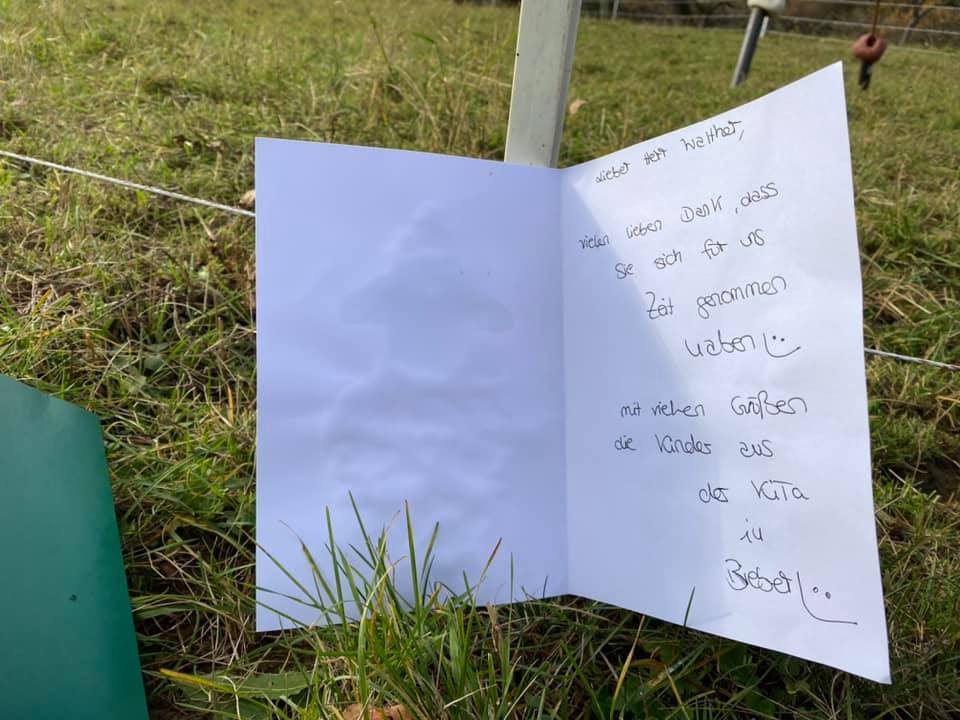 Lieber Herr Walther,
vielen lieben Dank, dass
Sie sich für uns
Zeit genommen
haben
mit vielen Grüßen
die Kinder aus
der KiTa
in
Bieber